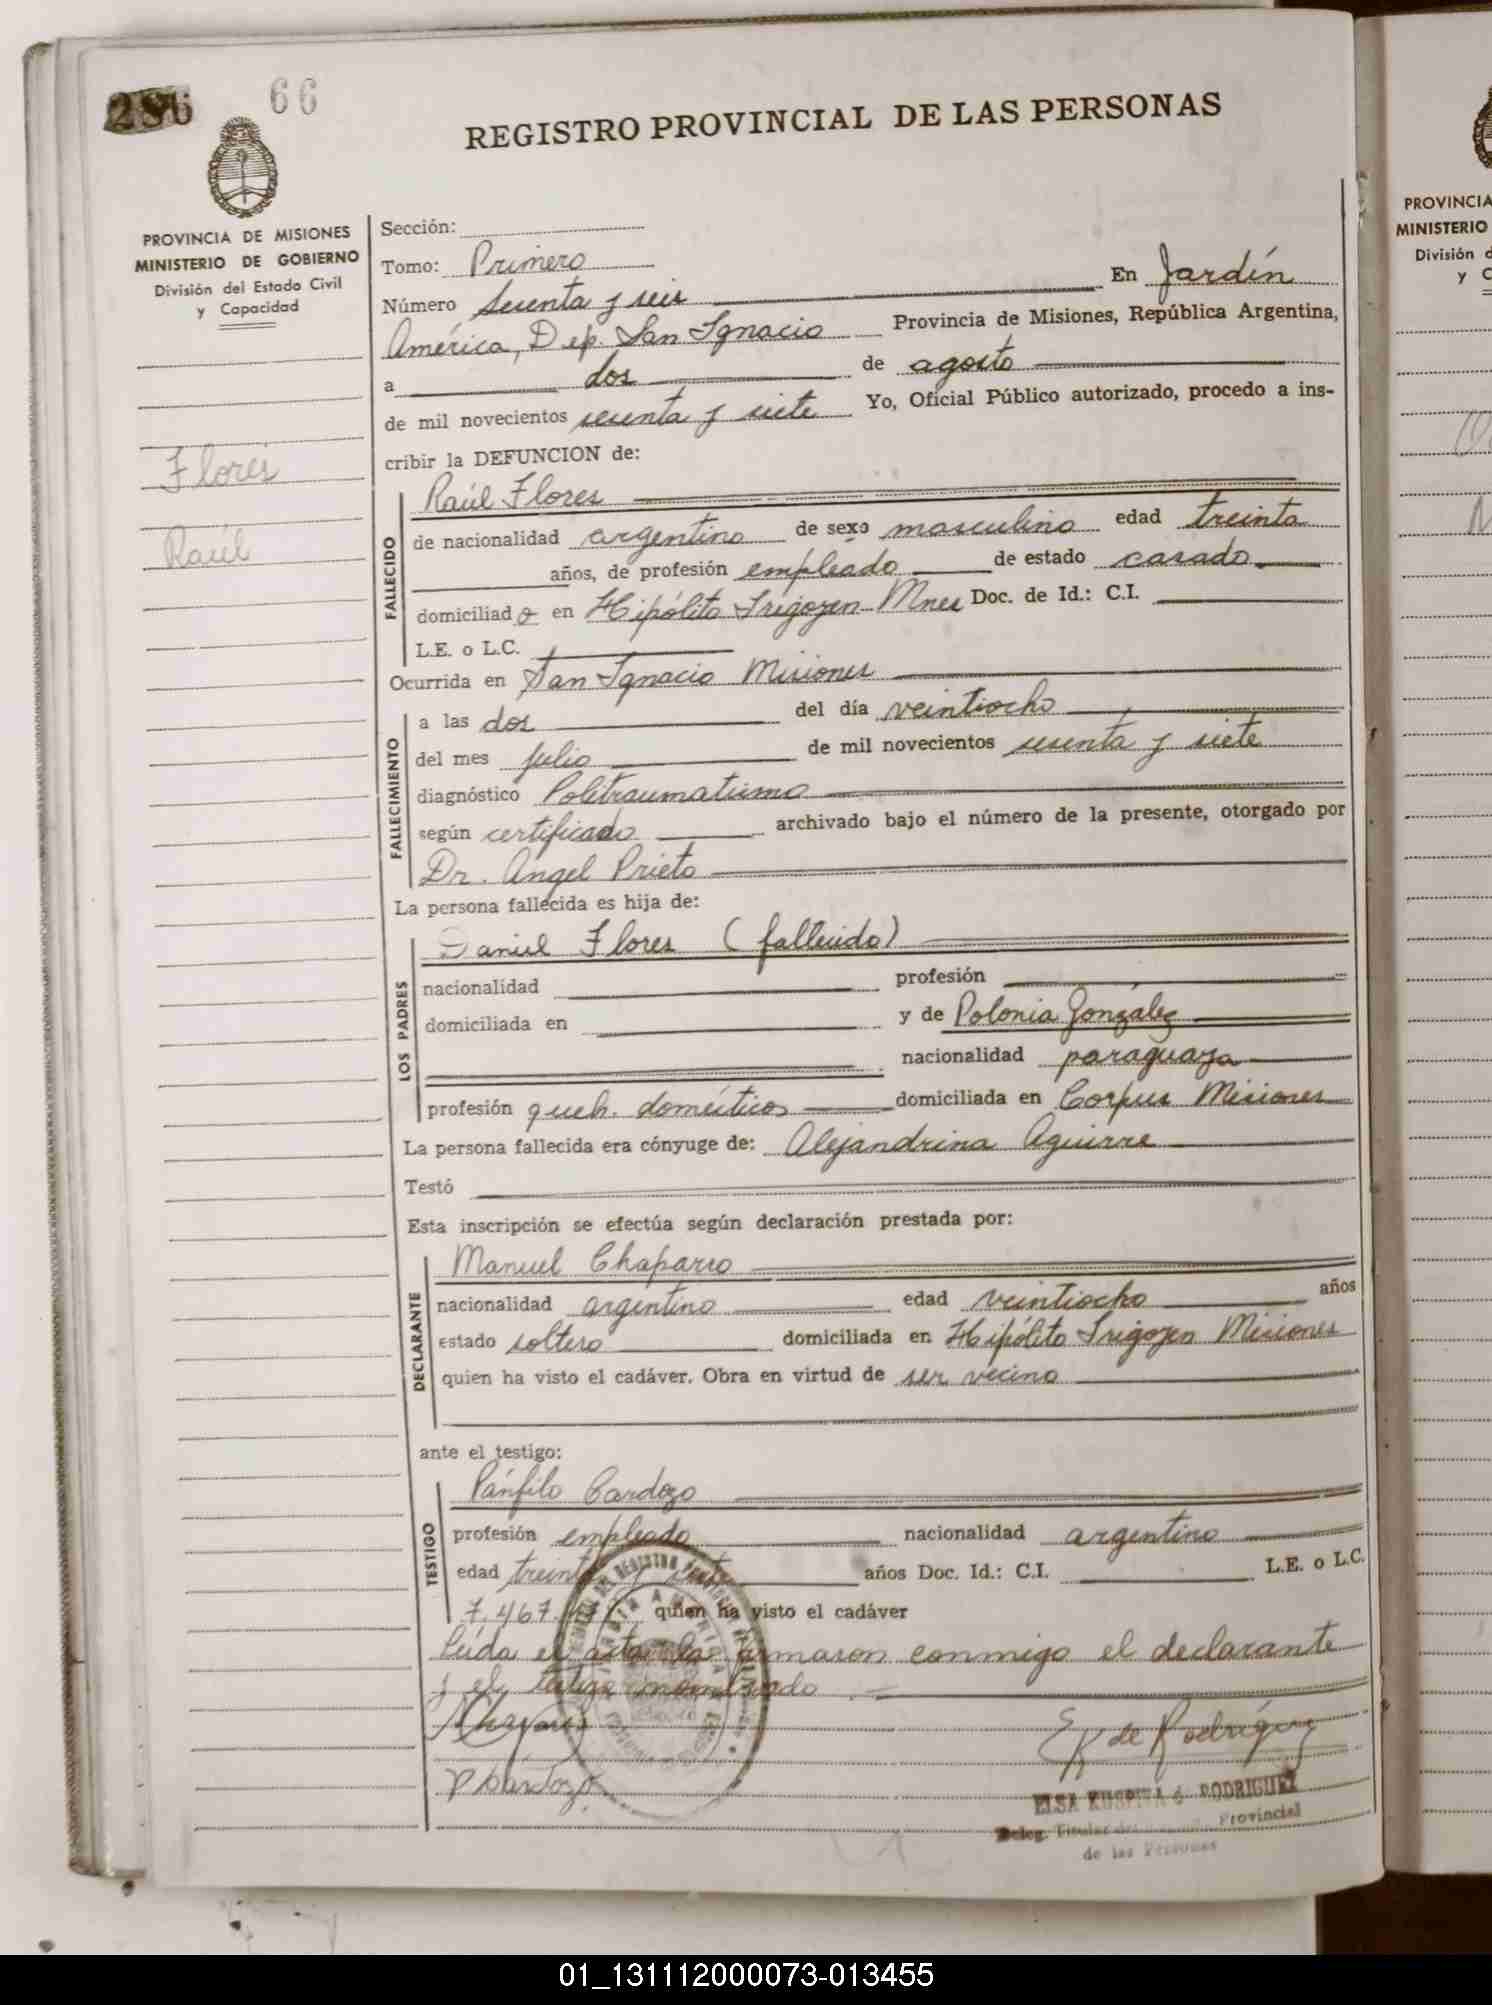 286 66
REGISTRO PROVINCIAL DE LAS PERSONAS
PROVINCIA DE MISIONES
MINISTERIO DE GOBIERNO
División del Estado Civil
y Capacidad
Flores
Raúl
Sección:
Tomo: Primero
Número Sesenta y seis En Jardín
América, Dep. San Ignacio Provincia de Misiones, República Argentina,
a dos de agosto
de mil novecientos sesenta y siete Yo, Oficial Público autorizado, procedo a ins-
cribir la DEFUNCION de:
FALLECIDO
Raúl Flores
de nacionalidad argentino de sexo masculino edad treinta
años, de profesión empleado de estado casado
domiciliado en Hipólito Irigoyen Mnes Doc. de Id.: C.I.
L.E. o L.C.
Ocurrida en San Ignacio Misiones
FALLECIMIENTO
a las dos del día veintiocho
del mes julio de mil novecientos sesenta y siete
diagnóstico Politraumatismo
según certificado archivado bajo el número de la presente, otorgado por
Dr. Angel Prieto
La persona fallecida es hija de:
LOS PADRES
Daniel Flores (fallecido)
nacionalidad profesión
domiciliada en y de Polonia González
nacionalidad paraguaya
profesión queh. domésticos domiciliada en Corpus Misiones
La persona fallecida era cónyuge de: Alejandrina Aguirre
Testó
Esta inscripción se efectúa según declaración prestada por:
DECLARANTE
Manuel Chaparro
nacionalidad argentino edad veintiocho años
estado soltero domiciliada en Hipólito Irigoyen Misiones
quien ha visto el cadáver. Obra en virtud de ser vecino
ante el testigo:
TESTIGO
Pánfilo Cardozo
profesión empleado nacionalidad argentino
edad treinta y años Doc. Id.: C.I. L.E. o L.C.
7.467. quien ha visto el cadáver
Leída el acta la firmaron conmigo el declarante
y el testigo nombrado.
Chaparro EK de Rodríguez
P Cardozo
ELSA KUSPITA d RODRIGUEZ
Deleg. Titular del Provincial
de las Personas
PROVINCIA
MINISTERIO
División d
y C
01_131112000073-013455